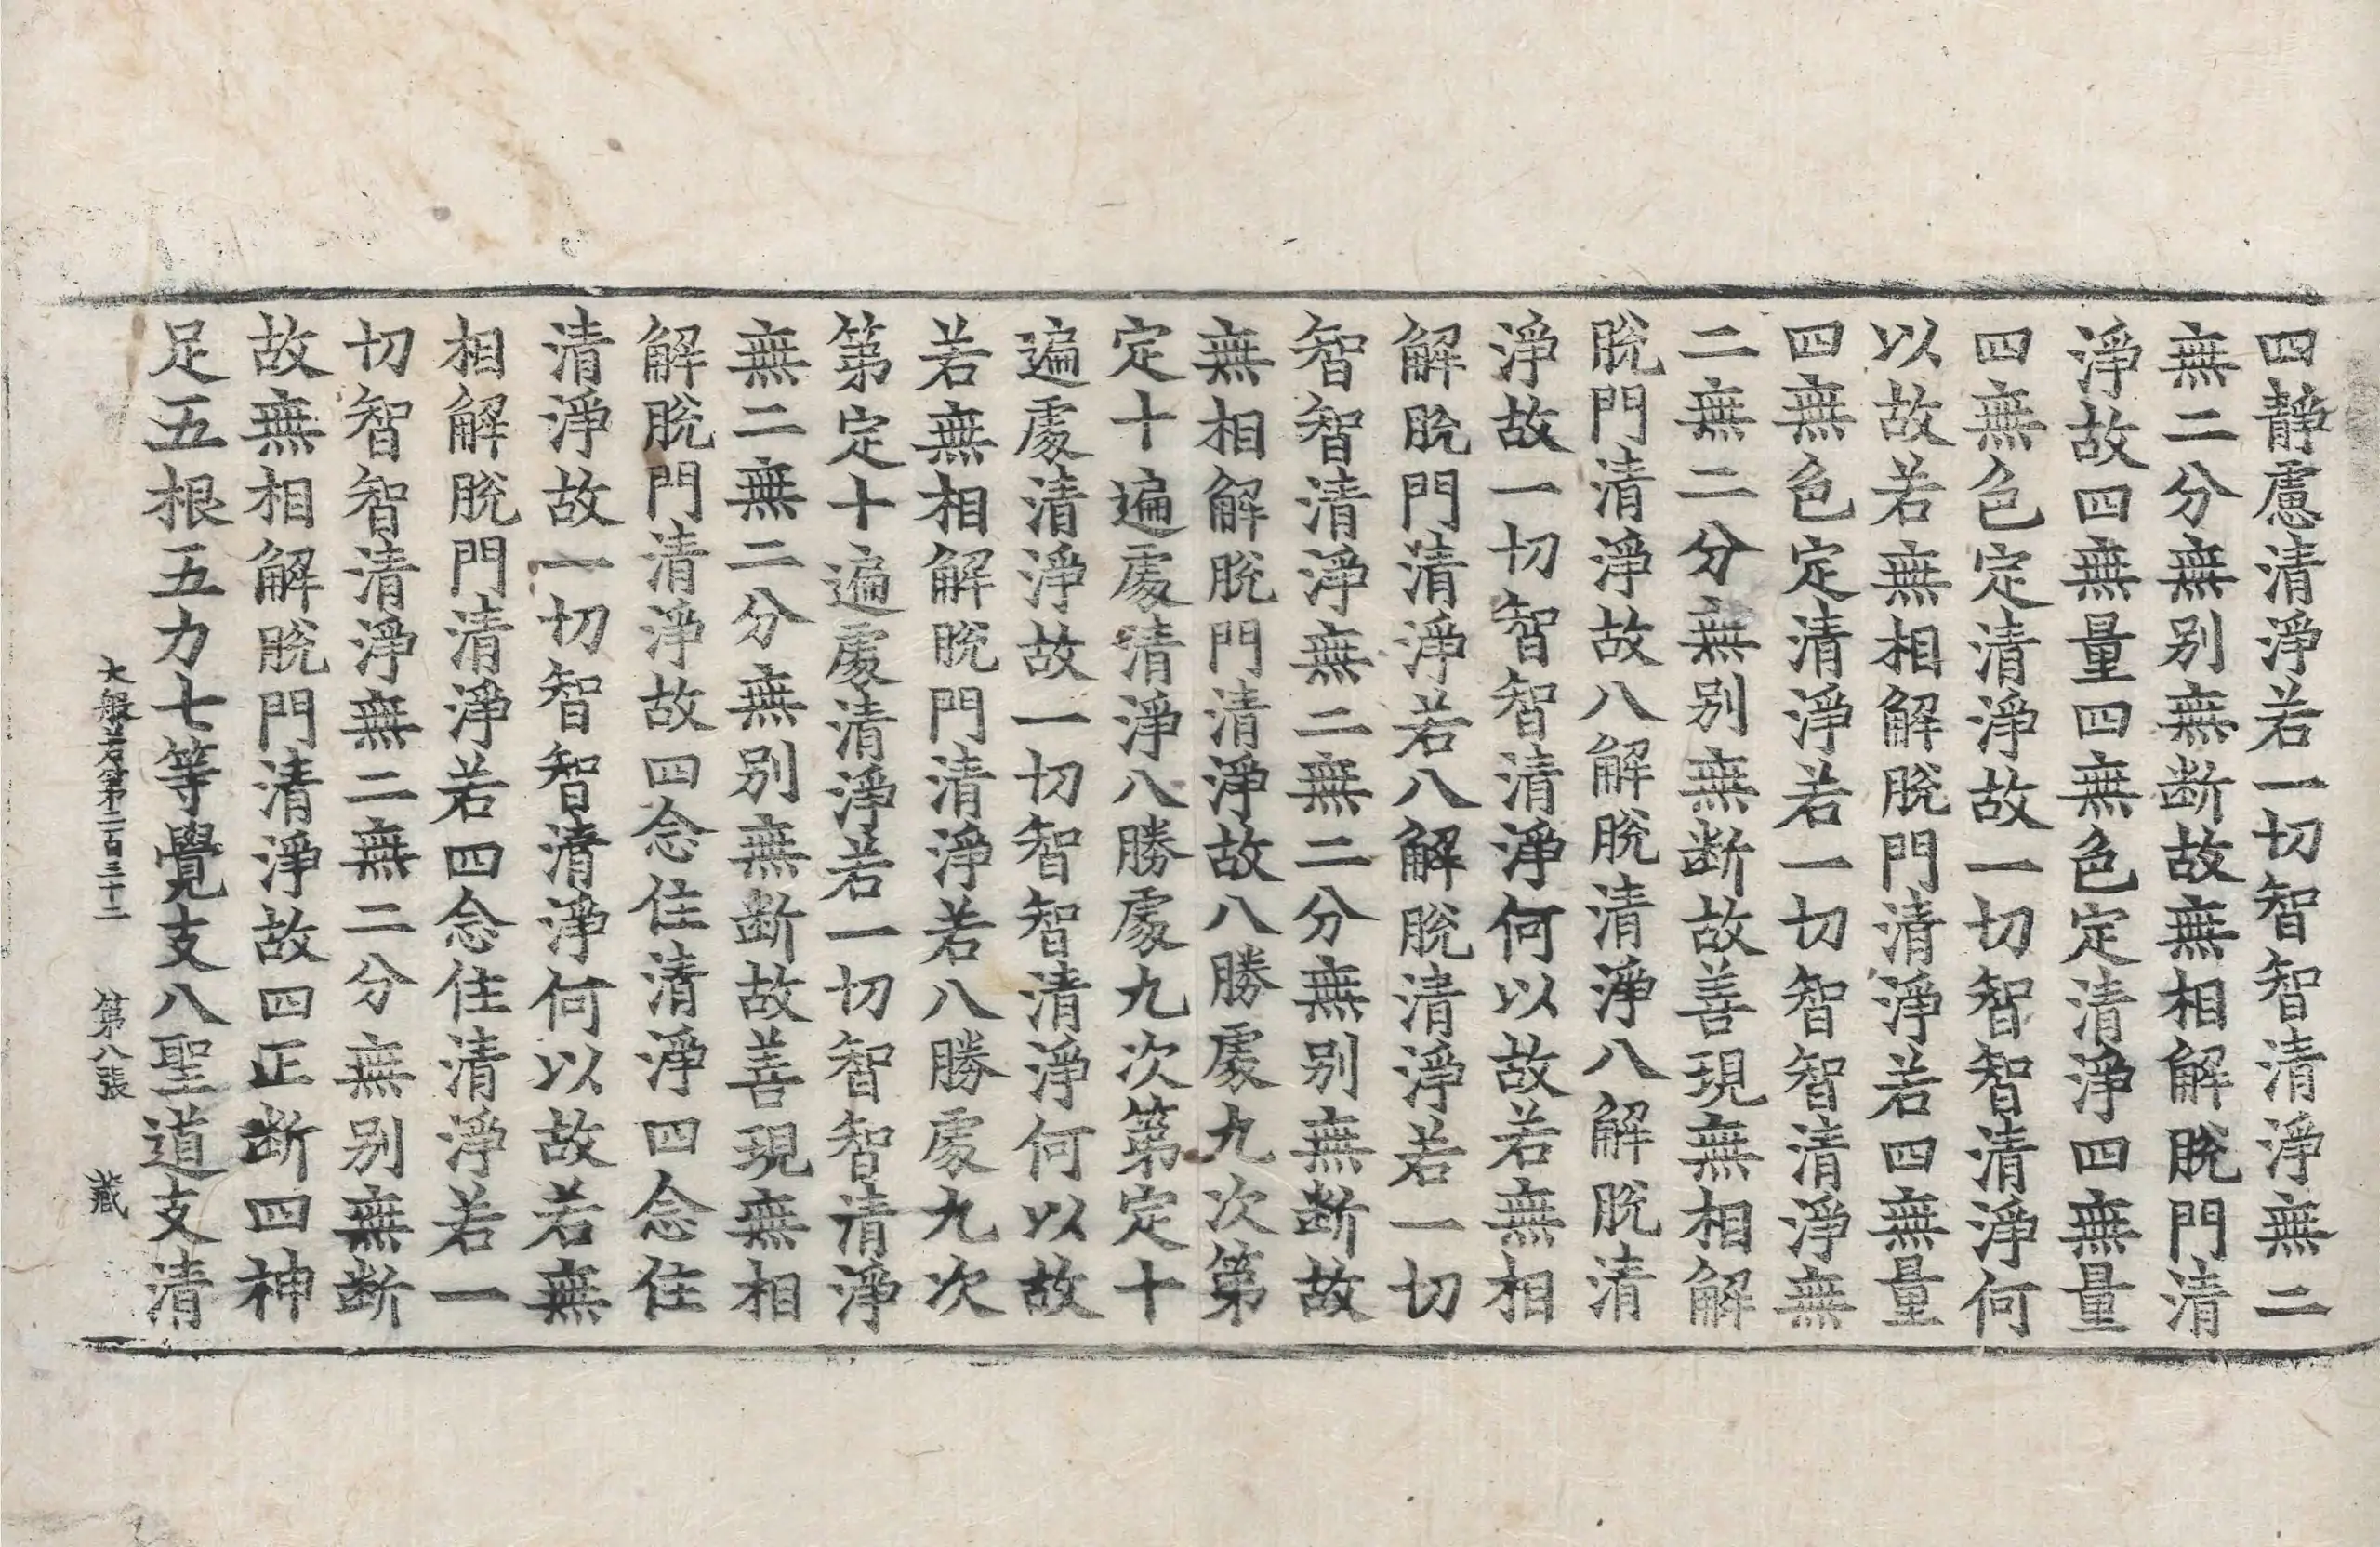 四靜慮清淨若一切智智清淨無二
無二分無別無断故無相解脫門清
淨故四無量四無色定清淨四無量
四無色定清淨故一切智智清淨何
以故若無相解脫門清淨若四無量
四無色定清淨若一切智智清淨無
二無二分無別無断故善現無相解
脫門清淨故八解脫清淨八解脫清
淨故一切智智清淨何以故若無相
解脫門清淨若八解脫清淨若一切
智智清淨無二無二分無別無断故
無相解脫門清淨故八勝處九次第
定十遍處清淨八勝處九次第定十
遍處清淨故一切智智清淨何以故
若無相解脫門清淨若八勝處九次
第定十遍處清淨若一切智智清淨
無二無二分無別無断故善現無相
解脫門清淨故四念住清淨四念住
清淨故一切智智清淨何以故若無
相解脫門清淨若四念住清淨若一
切智智清淨無二無二分無別無断
故無相解脫門清淨故四正断四神
足五根五力七等覺支八聖道支清
大般若第二百三十二 第八張 藏